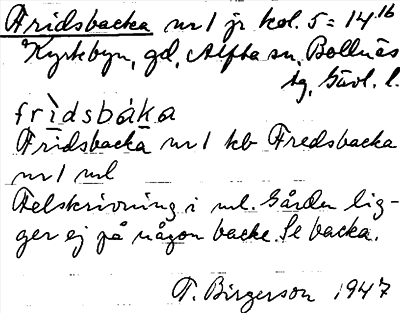 Fridsbacka nr 1 jr kol. 5 = 14.16
Kyrkbyn, gd, Alfta sn, Bollnäs
tg, Gävl. l.
frìdsbàka
Fridsbacka nr 1 kb Fredsbacka
nr 1 ml
Felskrivning i ml. Gården lig-
ger ej på någon backe. Se backa.
T. Birgerson 1947